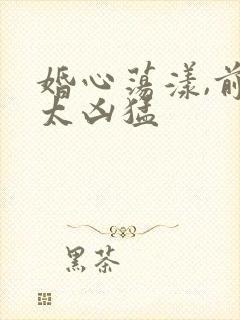 婚心荡漾,前
太凶猛
黑茶